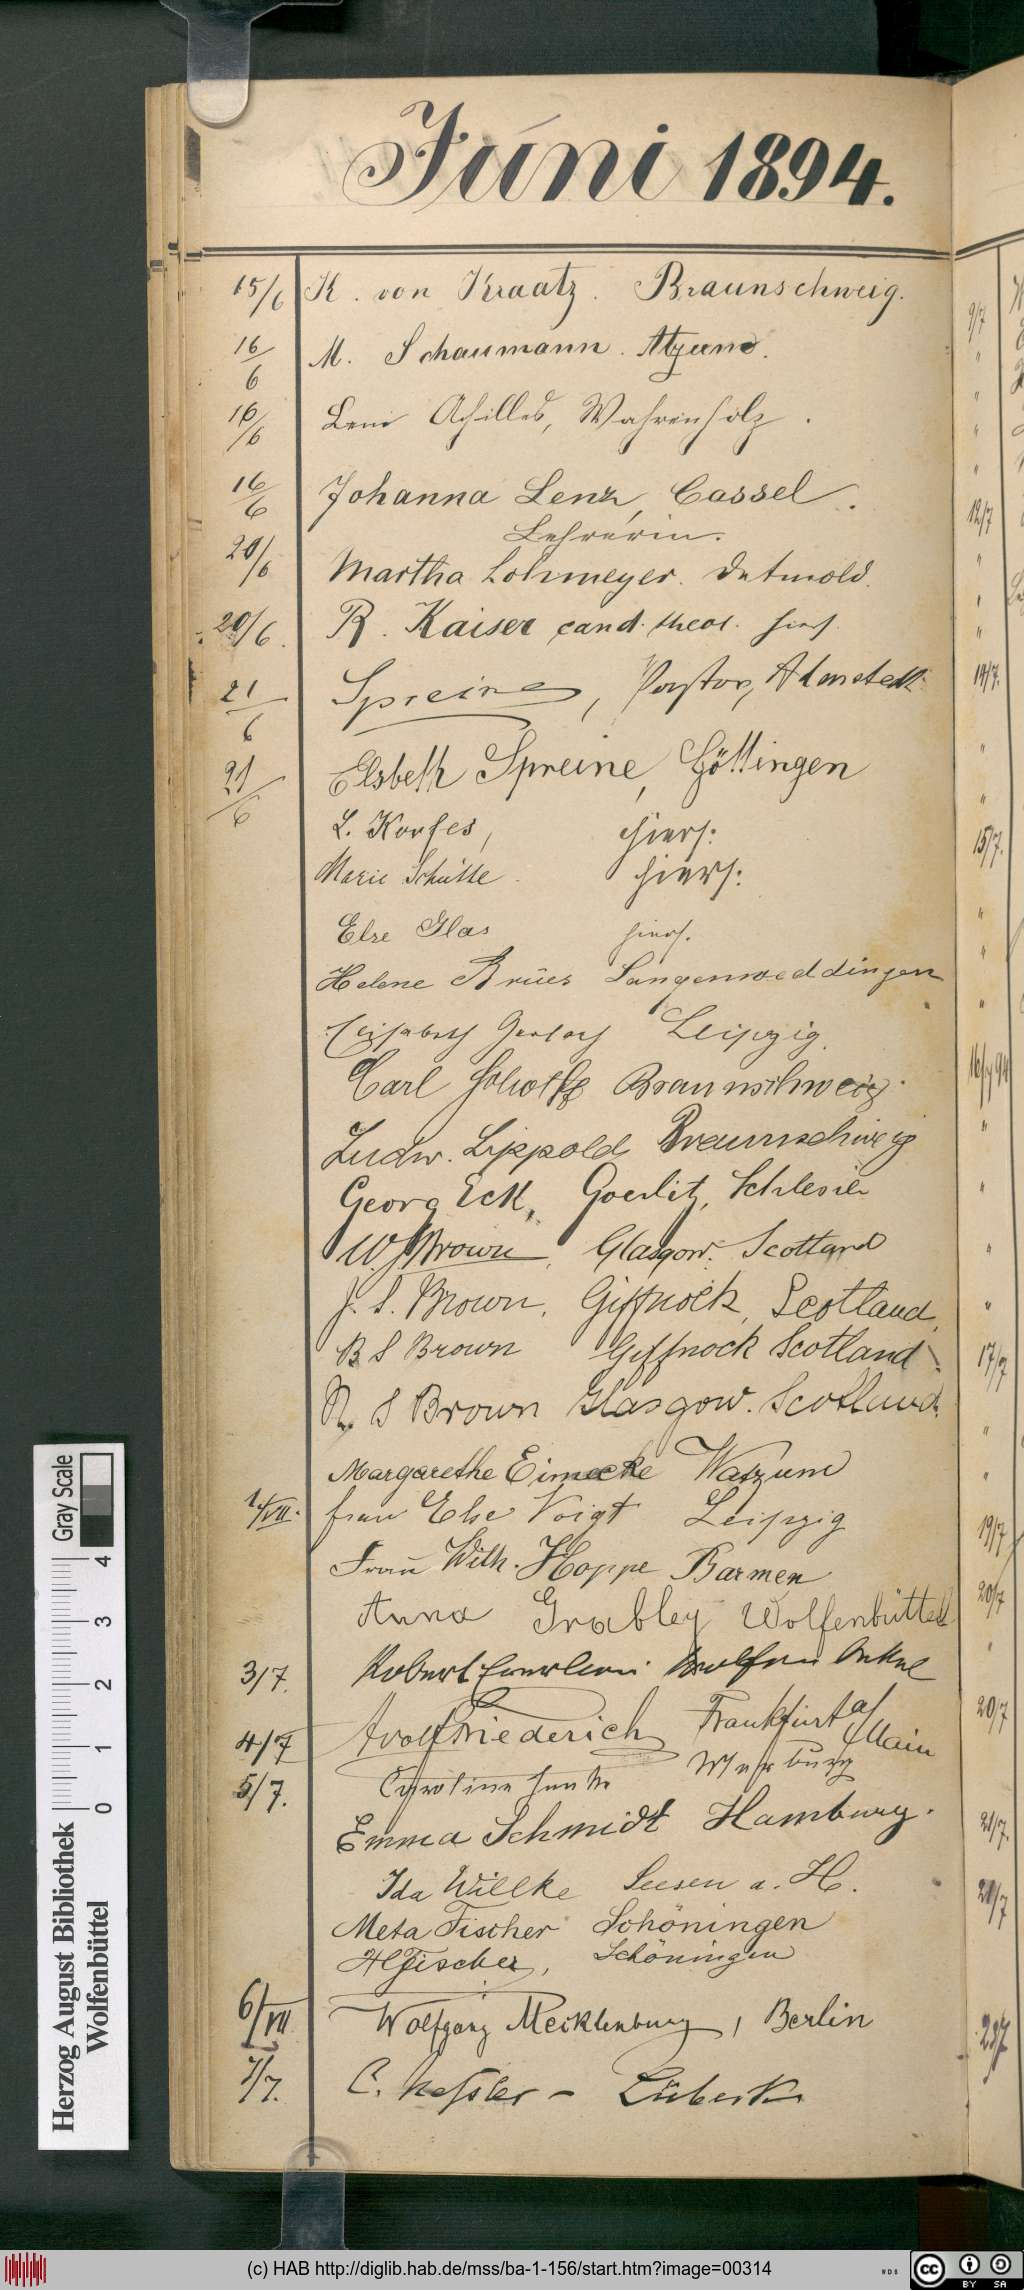 Juni 1894.
15/6 K. von Kraatz. Braunschweig.
16/6 M. Schaumann. Atzum.
16/6 Leni Achilles, Wahrenholz.
16/6 Johanna Lenz, Cassel.
Lehrerin.
20/6 Martha Lohmeyer. Detmold.
20/6 R. Kaiser cand. theol. hiers.
21/6 Spreine, Pastor, Almstedt
21/6 Elsbeth Spreine, Göttingen
L. Korfes, hiers:
Marie Schütte hiers:
Else Glas hiers.
Helene Brües Langenweddingen
Elisabeth Gerlach Leipzig.
Carl Braunschweig.
Ludw. Lippold Braunschweig
Georg Eck, Goerlitz, Schlesien
W. J. Brown, Glasgow. Scotland
J. S. Brown, Giffnock, Scotland,
B S Brown Giffnock Scotland
R. S Brown Glasgow. Scotland.
Margarethe Eimecke Watzum
1/VII. Frau Else Voigt Leipzig
Frau Wilh. Hoppe Barmen
Anna Grabley Wolfenbüttel
3/7. Robert
4/7 Adolf Friederich Frankfurt a/Main
5/7. Caroline
Emma Schmidt Hamburg.
Ida Willke Seesen a. H.
Meta Fischer Schöningen
H Fischer, Schöningen
6/VII Wolfgang Mecklenburg, Berlin
7/7. C. Kessler – Lübeck
9/7
12/7
14/7.
15/7.
16/7 94
17/7
19/7
20/7
20/7
21/7.
21/7
23/7
Gray Scale
0 1 2 3 4
Herzog August Bibliothek
Wolfenbüttel
(c) HAB http://diglib.hab.de/mss/ba-1-156/start.htm?image=00314
cc BY SA